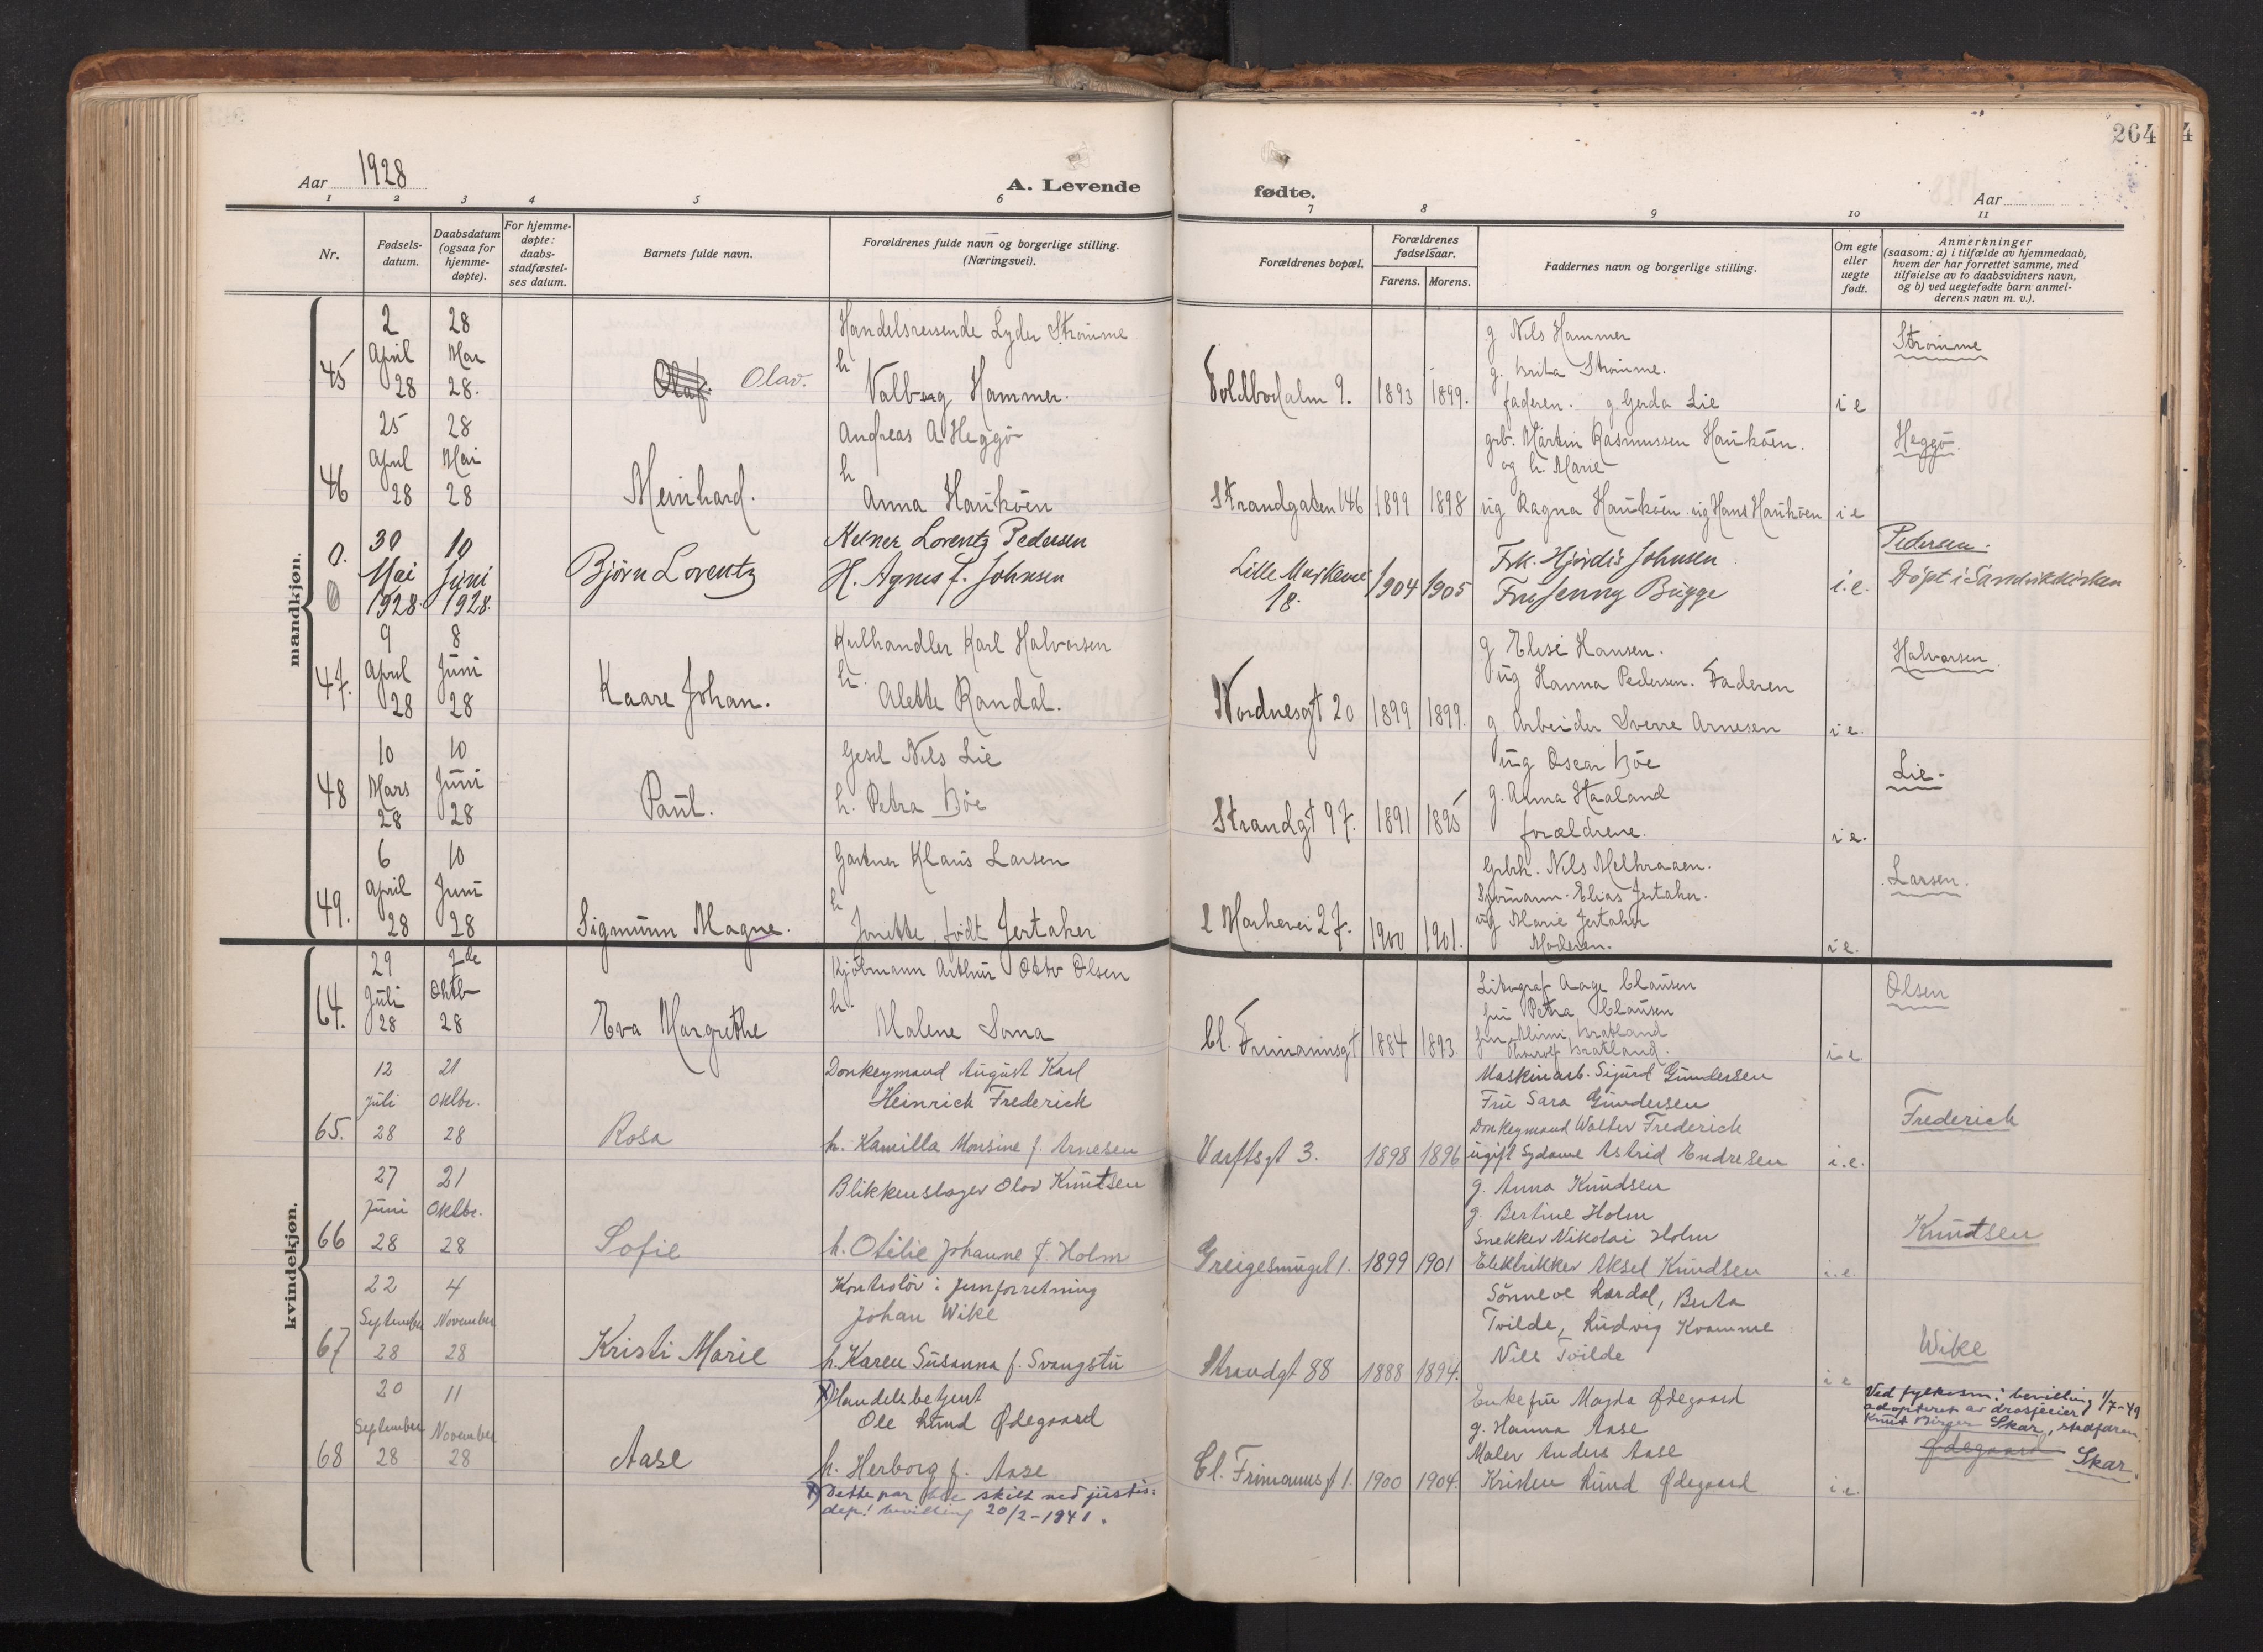 264
Aar 1928
A. Levende
fødte.
Aar
1 2 3 4 5 6 7 8 9 10 11
Nr.
Fødsels-
datum.
Daabsdatum
(ogsaa for
hjemme-
døpte).
For hjemme-
døpte:
daabs-
stadfæstel-
ses datum.
Barnets fulde navn.
Forældrenes fulde navn og borgerlige stilling.
(Næringsvei).
Forældrenes bopæl.
Forældrenes
fødselsaar.
Farens. Morens.
Faddernes navn og borgerlige stilling.
Om egte
eller
uegte
født.
Anmerkninger
(saasom: a) i tilfælde av hjemmedaab,
hvem der har forrettet samme, med
tilføielse av to daabsvidners navn,
og b) ved uegtefødte barn anmel-
derens navn m. v.).
mandkjøn.
45
2
April
28
28
Mai
28.
Olaf. Olav.
Handelsreisende Lyder Strømme
h
Valborg Hammer.
Toldbodalm 9.
1893 1899.
g Nils Hammer
g. Brita Strømme.
faderen. g. Gerda Lie
i e
Strømme
46
25
April
28
28
Mai
28
Meinhard.
Andreas A Heggø
h
Anna Haukøen
Strandgaten 146
1899 1898
grb. Martin Rasmussen Haukøen.
og h. Marie
ug Ragna Haukøen. ug Hans Haukøen
i e
Heggø.
0.
30
Mai
1928.
10
Juni
1928.
Bjørn Lorentz
Kelner Lorentz Pedersen
H. Agnes f. Johnsen
Lille Markevei
18.
1904 1905
Frk. Hjørdis Johnsen
Fru Jenny Bugge
i.e.
Pedersen.
Döpt i Sandvikskirken
47.
9
April
28
8
Juni
28
Kaare Johan.
Kulhandler Karl Halvorsen
h.
Alette Randal.
Nordnesgt 20
1899 1899.
g Elise Hansen.
ug Hanna Pedersen. Faderen
g. Arbeider Sverre Arnesen
i e.
Halvorsen.
48
10
Mars
28
10
Juni
28
Paul.
Gesel Nils Lie
h. Petra Bøe
Strandgt 97.
1891 1895
ug Oscar Bøe
g. Anna Haaland
forældrene.
i e.
Lie.
49.
6
April
28
10
Juni
28
Sigmunn Magne.
Gartner Klaus Larsen
h
Jonette, født Jertaker
l Markevei 27.
1900 1901.
Grbrh. Nils Melkraaen.
Sjømann. Elias Jertaker.
ug Marie Jertaker
Moderen.
i e.
Larsen.
kvindekjøn.
64.
29
Juli
28
7de
Oktb
28
Eva Margrethe
Kjøbmann Arthur Otto Olsen
h.
Malene Soma
Cl. Frimannsgt
1884 1893.
Litograf Aage Clausen
fru Petra Clausen
fru Mimi Bratland
Thorolf Bratland.
i e
Olsen
65.
12
Juli
28
21
Oktbr.
28
Rosa
Donkeymand August Karl
Heinrich Frederick
h. Kamilla Monsine f. Arnesen
Værftsgt 3.
1898 1896
Maskinarb. Sigurd Gundersen
Fru Sara Gundersen
Donkeymand Walter Frederick
ugift Sydame Astrid Endresen
i.e.
Frederich
66
27
Juni
28
21
Oktbr.
28
Sofie
Blikkenslager Olav Knutsen
h. Otilie Johanne f. Holm
Greigesmuget 1.
1899 1901
g. Anna Knudsen
g. Bertine Holm
Snekker Nikolai Holm
Elektrikker Aksel Knudsen
i.e.
Knutsen
67
22
September
28
4
November
28
Kristi Marie
Kontrolør i Jernforretning
Johan Wike
h. Karen Susanna f. Svangstu
Strandgt 88
1888 1894.
Sönneve Lærdal, Berta
Tvilde, Ludvig Kvamme
Nils Tvilde
i e
Wike
68
20
September
28
11
November
28
Aase
x) Handelsbetjent
Ole Lund Ødegaard
h. Herborg f. Aase
x) Dette par ble skilt ved justis:
dep! bevilling 20/2-1941.
Cl. Frimannsgt 1.
1900 1904.
Enkefru Magda Ødegaard
g. Hanna Aase
Maler Anders Aase
Kristen Lund Ødegaard
i.e.
Ved fylkesm: bevilling 1/7-49
adopteret av drosjeeier
Knut Birger Skar, stedfaren.
Ødegaard Skar.